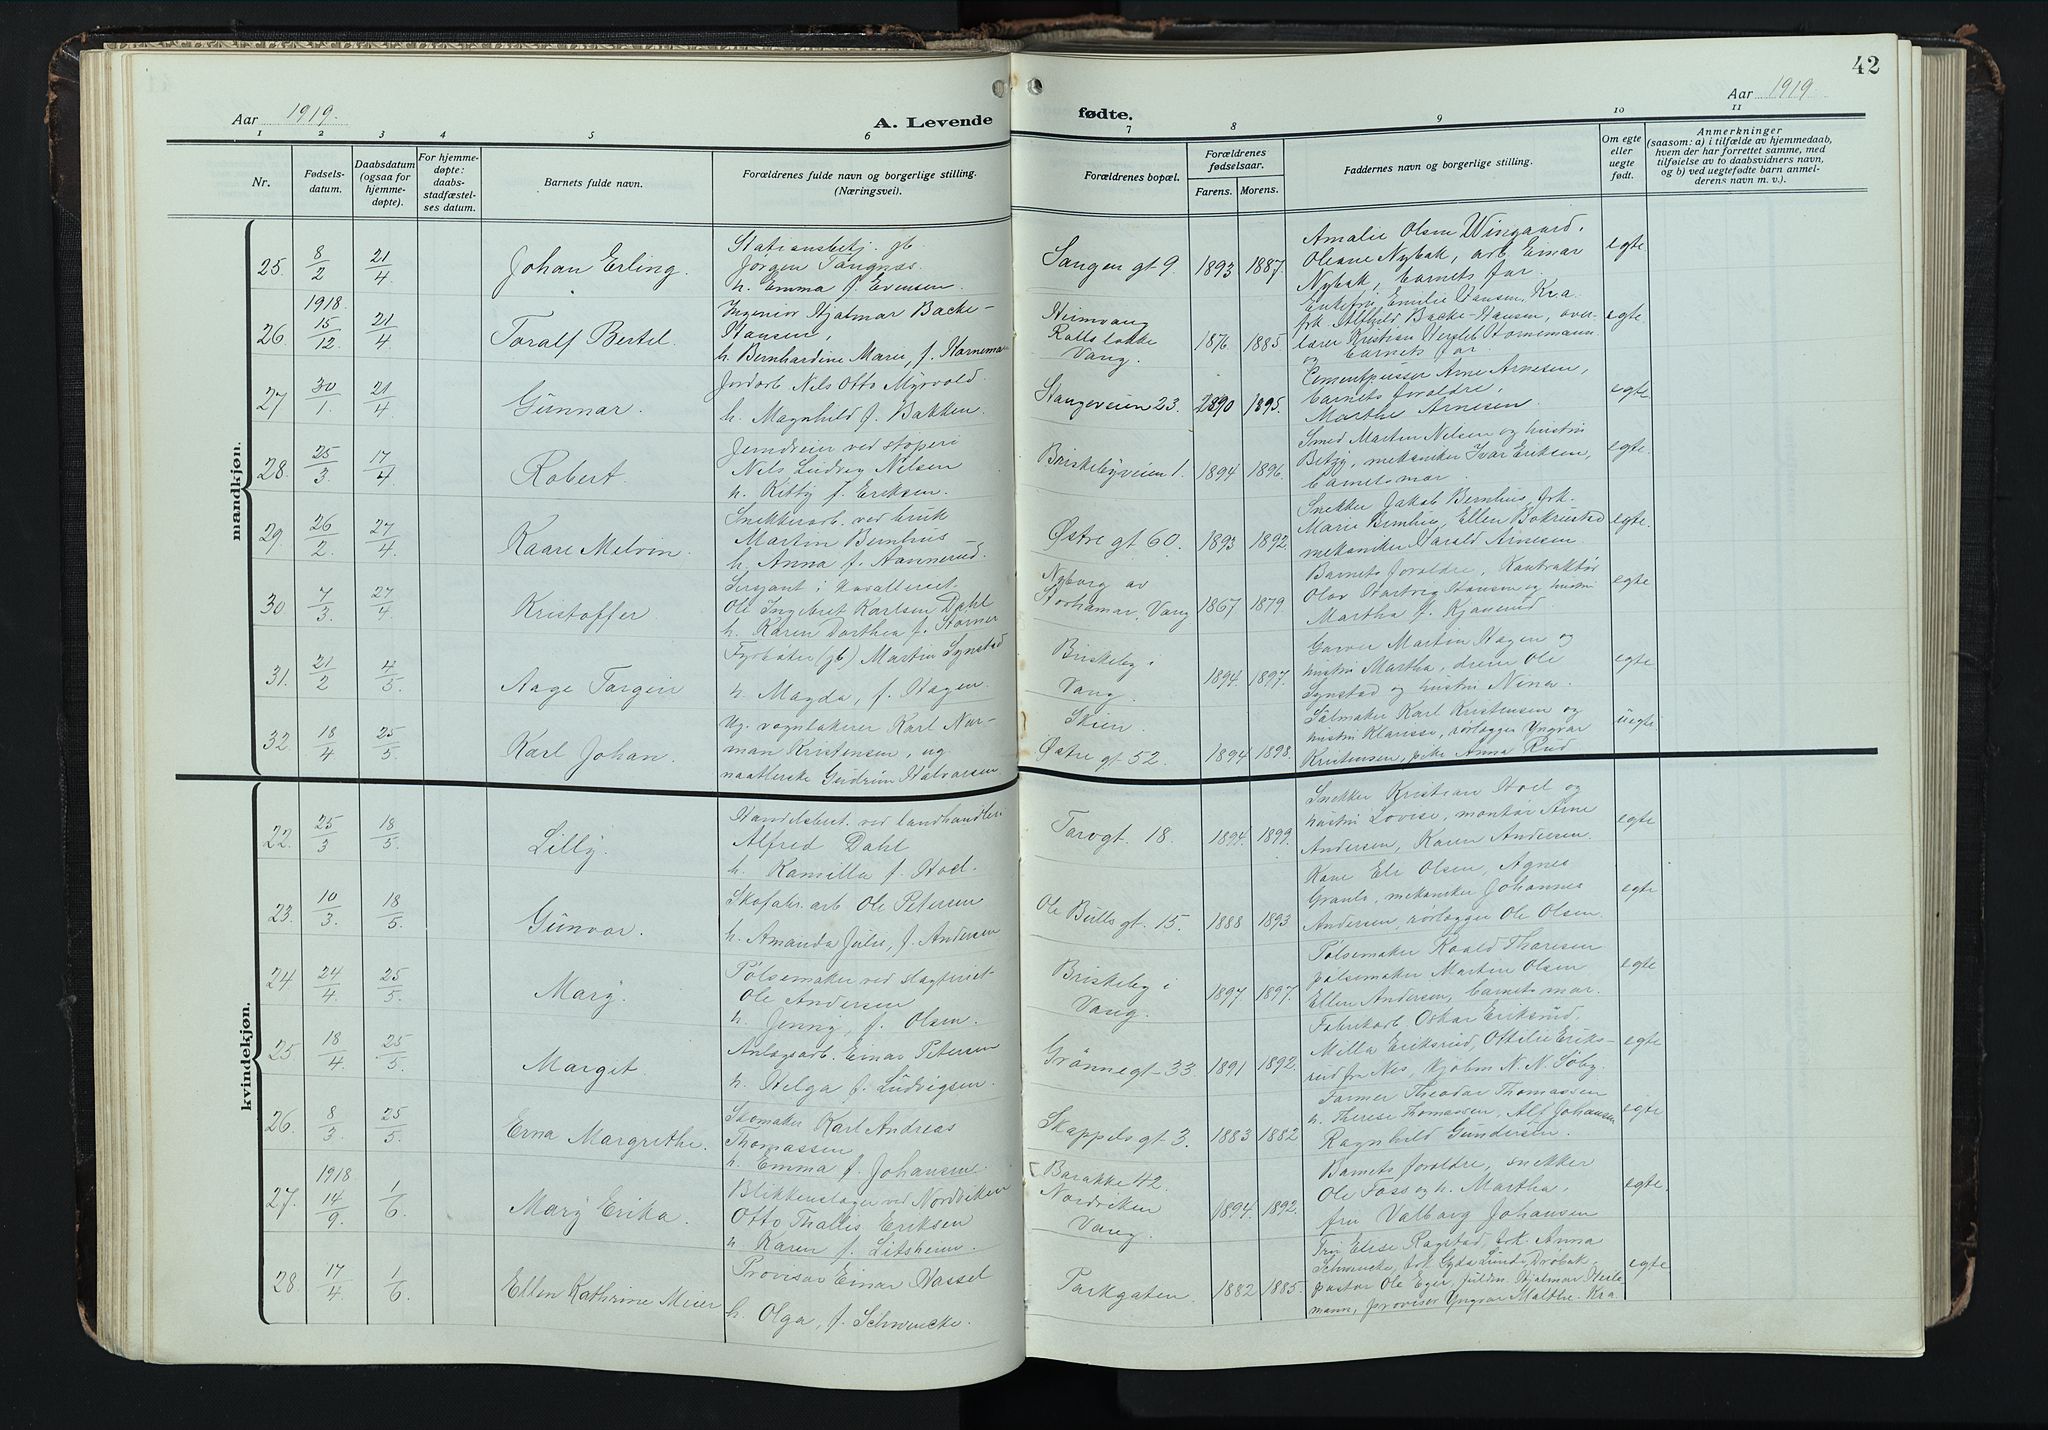 42
Aar 1919. A. Levende fødte. Aar 1919.
1 2 3 4 5 6 7 8 9 10 11
Nr.
Fødsels-
datum.
Daabsdatum
(ogsaa for
hjemme-
døpte).
For hjemme-
døpte:
daabs-
stadfæstel-
ses datum.
Barnets fulde navn.
Forældrenes fulde navn og borgerlige stilling.
(Næringsvei).
Forældrenes bopæl.
Forældrenes
fødselsaar.
Farens. Morens.
Faddernes navn og borgerlige stilling.
Om egte
eller
uegte
født.
Anmerkninger
(saasom: a) i tilfælde av hjemmedaab,
hvem der har forrettet samme, med
tilføielse av to daabsvidners navn,
og b) ved uegtefødte barn anmel-
derens navn m. v.).
mandkjøn.
25. 8/2 21/4 Johan Erling.
Stationsbetj. gb
Jørgen Tangnæs.
h. Emma f. Evensen.
Sangen gt 9. 1893 1887.
Amalie Olsen Wingaard,
Oleane Nybak, arb. Einar
Nybak, barnets far.
egte
26. 1918 15/12. 21/4 Toralf Bertel.
Ingeniør Hjalmar Backe-
Hansen,
h. Bernhardine Marie, f. Hornema
Heimvang
Rollsløkke
Vang.
1876 1885
Enkefru Emilie Hansen, Kra.
frk. Alfhild Backe-Hansen, over-
lærer Kristian Vergleb Hornemann
og barnets far
egte.
27 30/1. 21/4. Gunnar.
Jordarb. Nils Otto Myrvold.
h. Magnhild f. Bakken.
Stangeveien 23. 1890 1895.
Cementpusser Arne Arnesen,
barnets foreldre,
Marthe Arnesen.
egte.
28. 25/3 17/4 Robert.
Jerndreier ved støperi
Nils Ludvig Nilsen
h. Kitty f. Eriksen.
Briskebyveien 1. 1894 1896.
Smed Martin Nilsen og hustru
Betzy, mekaniker Ivar Eriksen,
barnets mor.
egte.
29. 26/2. 27/4 Kaare Melvin.
Snekkerarb. ved bruk
Martin Bernhus
h. Anna f. Aannerud.
Østre gt 60. 1893 1892.
Snekker Jakob Bernhus, frk.
Marie Bernhus, Ellen Bokrustad
mekaniker Harald Arnesen.
egte.
30 7/3. 27/4. Kristoffer.
Sersjant i kavalleriet
Ole Ingebret Karlsen Dahl
h. Karen Dorthea f. Storner
Nyborg av
Storhamar, Vang
1867 1879.
Barnets foreldre, Kontraktør
Olav Hartvig Hansen og hustru
Martha f. Kjønerud
egte
31. 21/2 4/5. Aage Torgein
Fyrbøter (jb) Martin Synstad
h. Magda, f. Hagen.
Briskeby i
Vang.
1894. 1897.
Garver Martin Hagen og
hustru Martha, dreier Ole
Synstad og hustru Nina.
egte
32. 18/4 25/5. Karl Johan.
Ug. vognlakerer Karl Nor-
man Kristensen, ug.
naatlerske Gudrun Halvorsen
Skien.
Østre gt 52.
1894 1898.
Salmaker Karl Kristensen og
hustru Klarisse, rørlægger Yngvar
Kristensen, pike Anna Rud
uegte.
kvindekjøn.
22. 25/3 18/5. Lilly.
Handelsbet. ved landhandleri
Alfred Dahl
h. Kamilla f. Hoel.
Torvgt. 18. 1894. 1899.
Snekker Kristian Hoel og
hustru Lovise, montør Arne
Andersen, Karen Andersen.
egte
23. 10/3. 18/5. Gunvor.
Skofabr. arb Ole Petersen
h. Amanda Julie, f. Andersen
Ole Bulls gt. 15. 1888 1893
Kone Eli Olsen, Agnes
Granli, mekaniker Johannes
Andersen, rørlægger Ole Olsen.
egte
24 24/4. 25/5. Mary.
Pølsemaker ved slagteriet
Ole Andersen
h. Jenny, f. Olsen.
Briskeby i
Vang.
1897. 1897.
Pølsemaker Roald Thoresen
pølsemaker Martin Olsen
Ellen Andersen, barnets mor.
egte
25. 18/4. 25/5. Margit.
Anlægsarb. Einar Petersen
h. Helga f. Ludvigsen.
Grønnegt 33. 1891 1892.
Fabrikarb Oskar Eriksrud.
Milla Eriksrud, Ottilie Eriks-
rud fra Nes, Hjalm N. N. Søby.
egte
26. 8/3. 25/5. Erna Margrethe.
Skomaker Karl Andreas
Thomassen
h. Emma f. Johansen
Skappels gt 3. 1883 1882
Former Theodor Thomassen
h. Therese Thomassen, Alf Johansen
Ragnhild Gundersen.
egte
27. 1918 14/9. 1/6. Mary Erika.
Blikkenslager ved Nordviken
Otto Thallis Eriksen
h. Karen f. Litsheim.
Barakke 42.
Nordviken
Vang.
1894. 1892.
Barnets foreldre, snekker
Ole Foss og h. Martha,
fru Valborg Johansen
egte.
28. 17/4 1/6. Ellen Kathrine Meier
Provisor Einar Hassel
h. Olga, f. Schwencke.
Parkgaten. 1882 1885.
Fru Elise Rogstad, frk. Anna
Schwencke, frk Gyda Lunde, Drøbak,
pastor Ole Eger, fuldm. Hjalmar Heile-
mann, provisor Yngvar Malthe. Kra
egte